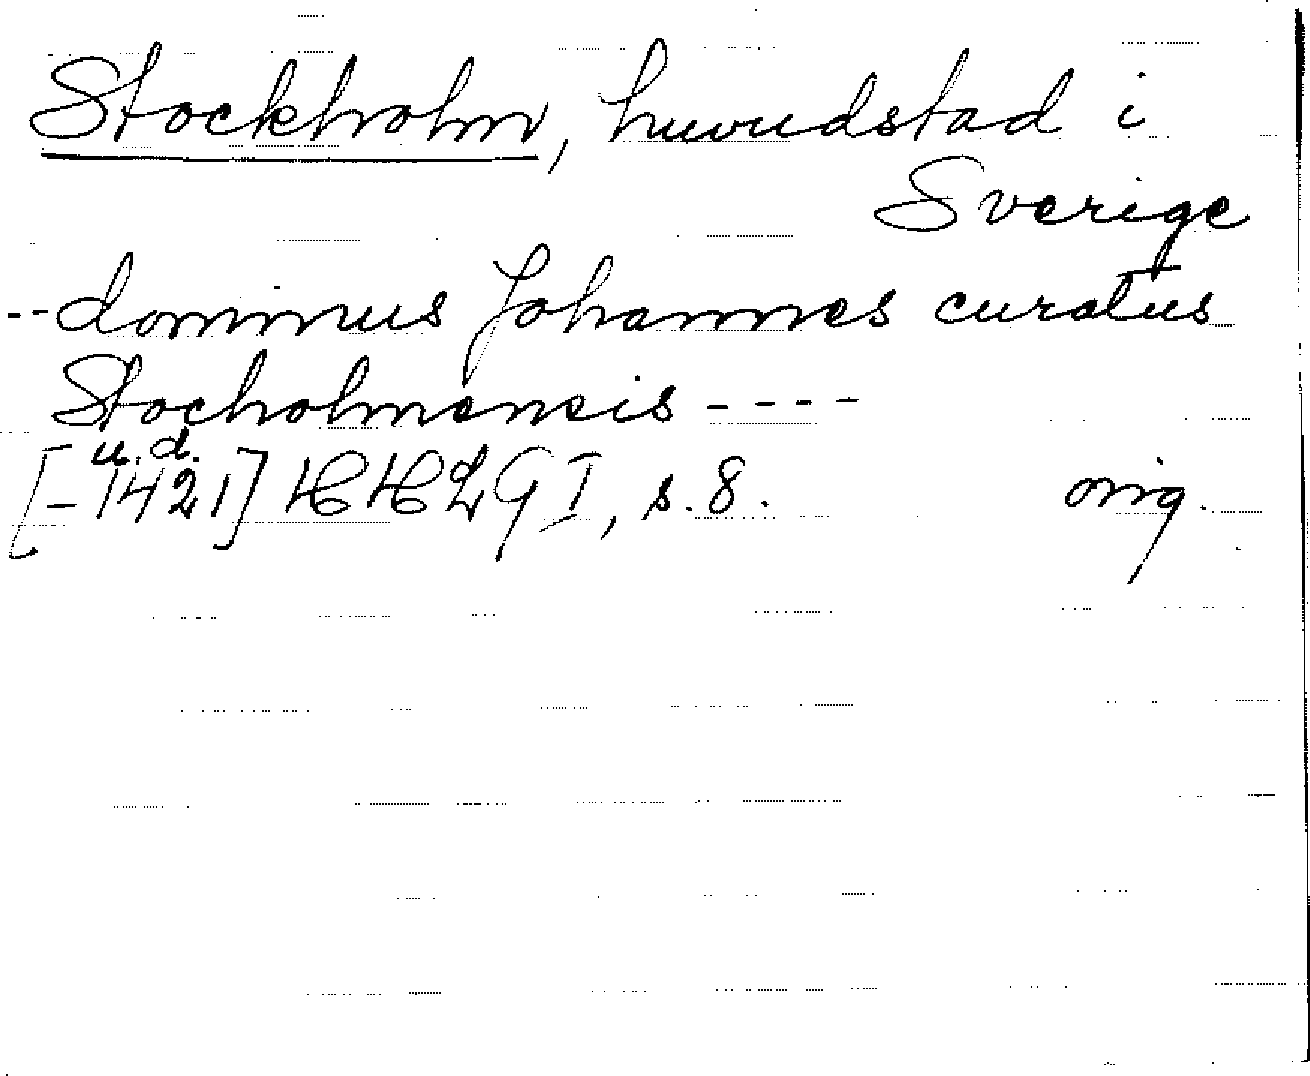 Stockholm, huvudstad i
Sverige
-- dominus Johannes curatus
Stocholmensis ----
u. d.
[-1421] HHLG I, s. 8. orig.